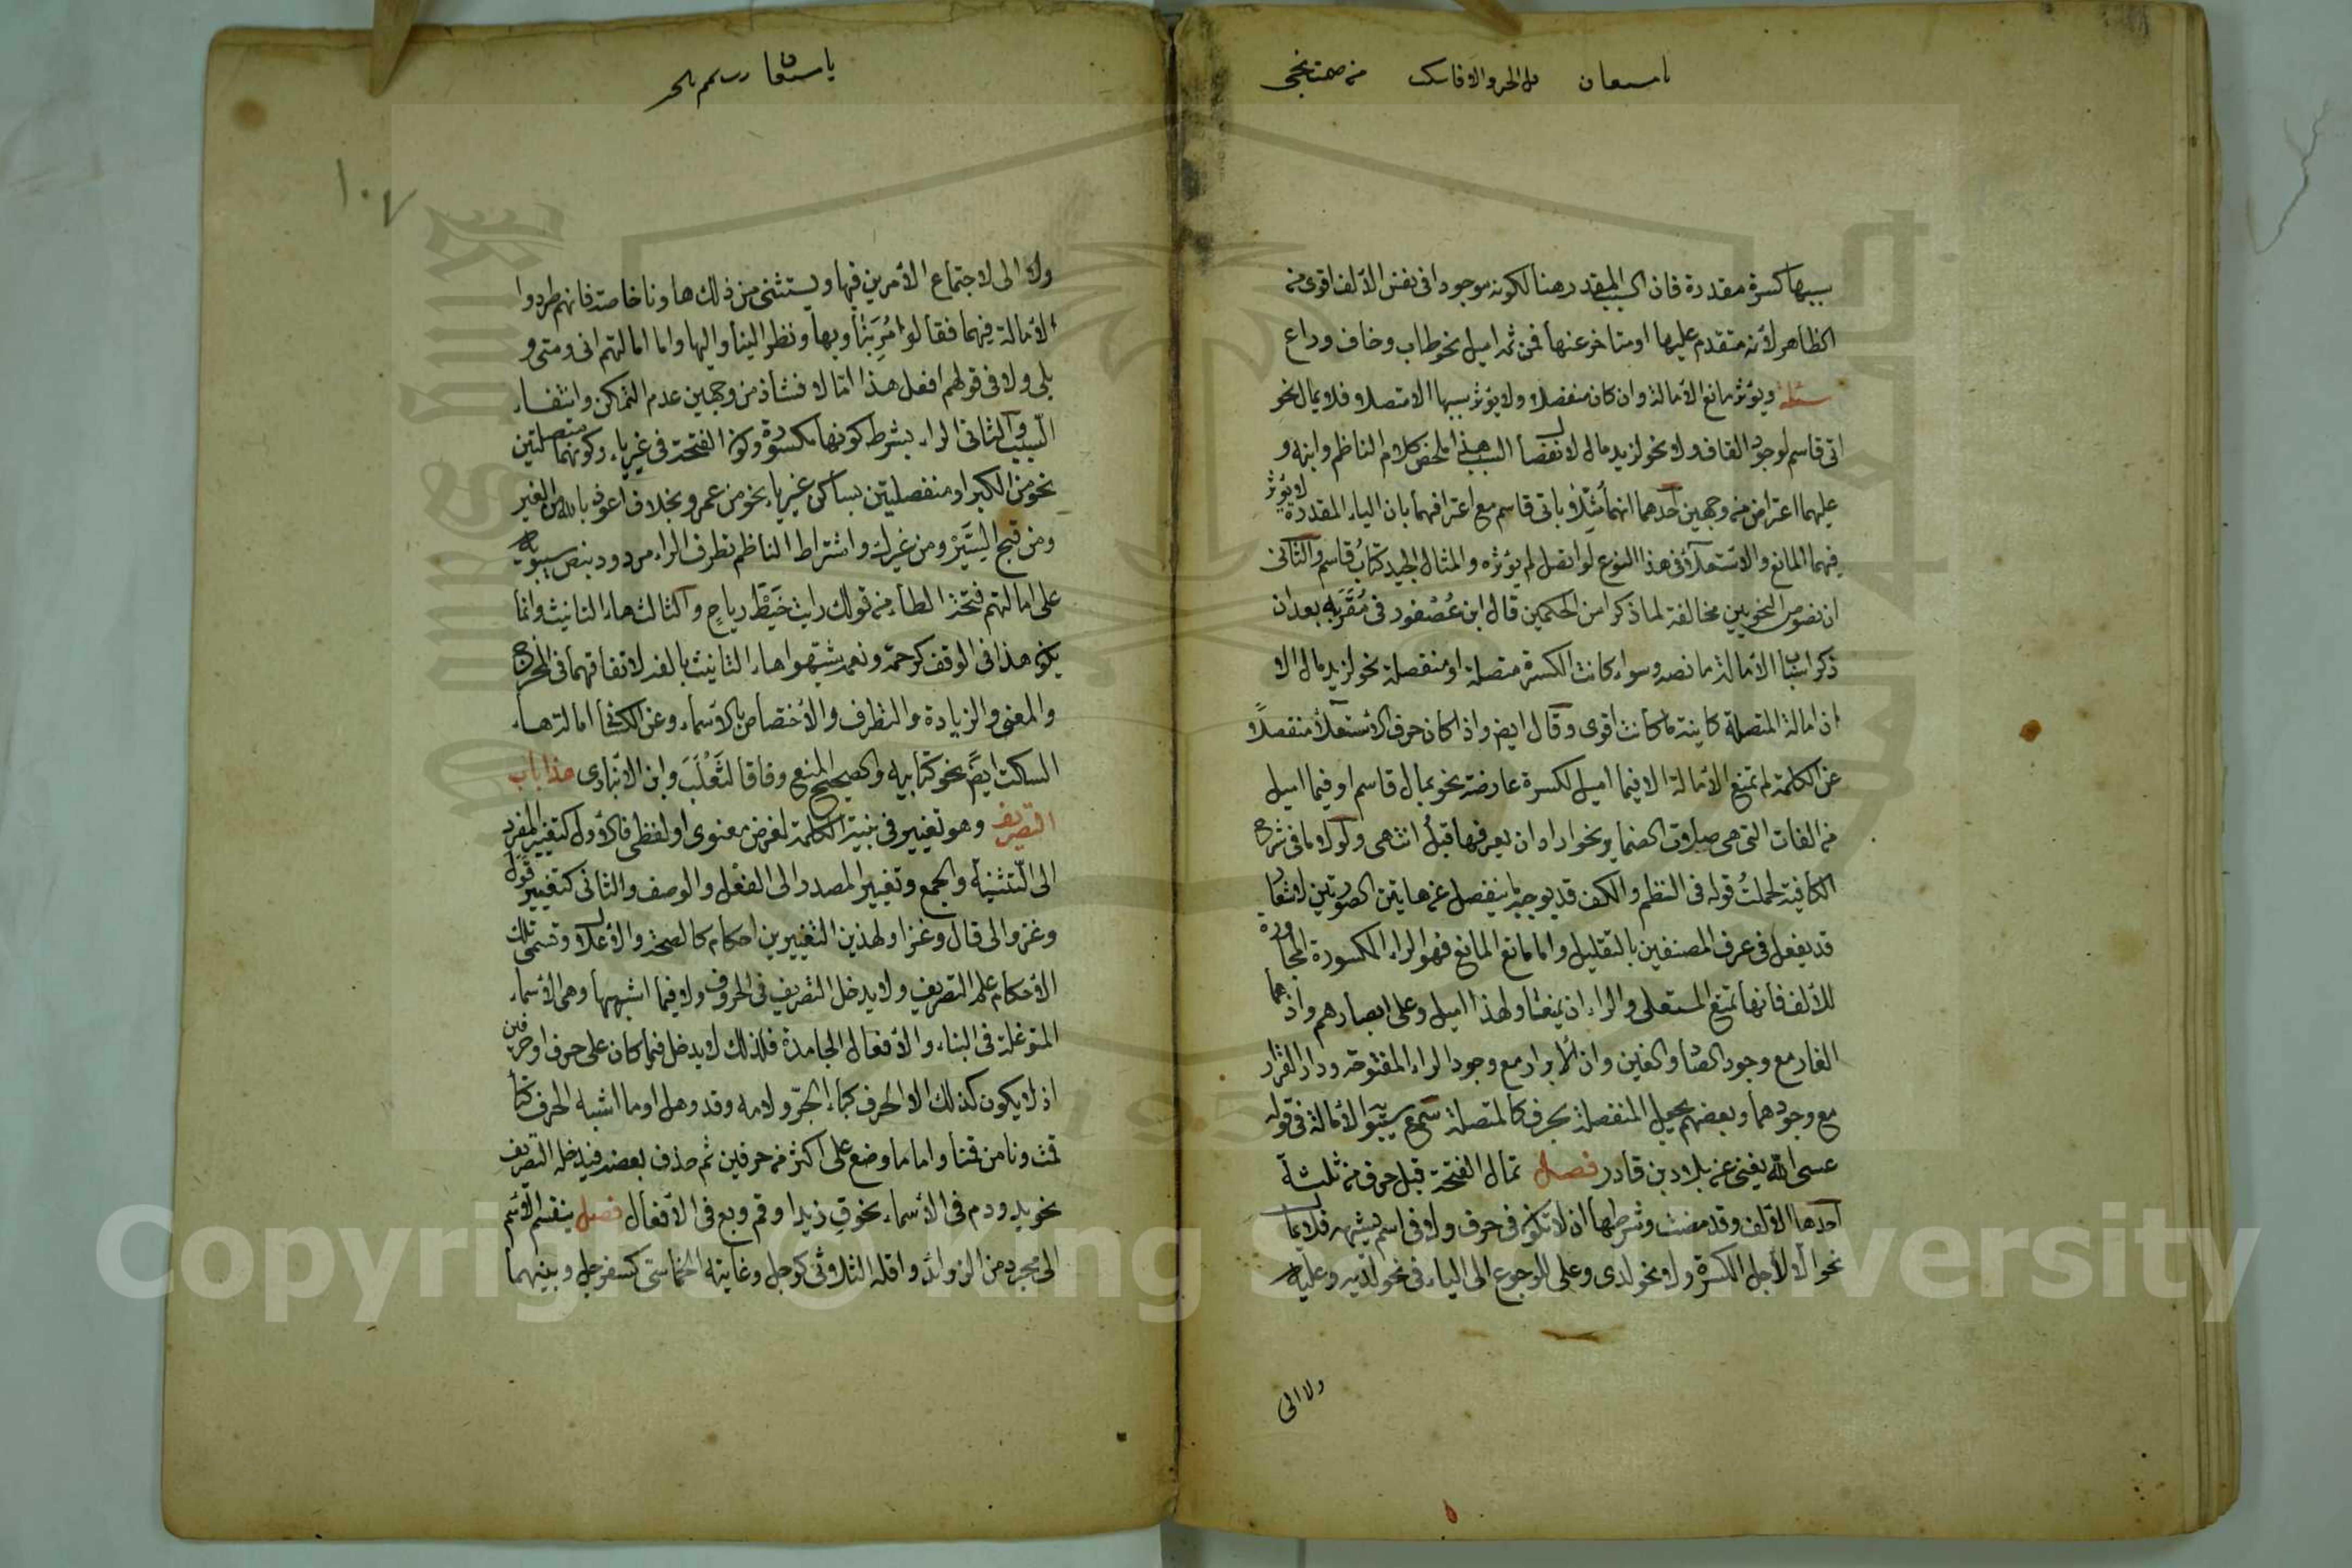 سببها كسرة مقدرة فان السبب المقدر هنا لكونه موجودا فى نفس الألف اقوى من
الظاهر لأنه متقدم عليها او متاخر عنها فمن ثمه اميل نحو طاب وخاف وداع
مسئلة ويؤثر مانع الأمالة وان كان منفصلا ولا يؤثر سببها الا متصلا فلا يمال نحو
اتى قاسم لوجود القاف ولا نحو لزيد مال لانفصال السبب هذا ملخص كلام الناظم وابنه و
عليهما اعتراض من وجهين احدهما انهما مثلا باتى قاسم مع اعترافهما بان الياء المقدرة لا يؤثر
فيهما المانع والاستعلآء فى هذا النوع لو اتصل لم يؤثر والمثال الجيد كتاب قاسم والثانى
ان نصوص النحويين مخالفة لما ذكرا من الحكمين قال ابن عُصْفور فى مُقَرَّبه بعد ان
ذكر اسباب الأمالة ما نصه وسواء كانت الكسرة متصلة او منفصلة نحو لزيد مال الا
ان امالة المتصلة كاينة ما كانت اقوى وقال ايض واذا كان حرف الاستعلآء منفصلًا
عن الكلمة لم تمنع الأمالة الا فيما اميل لكسرة عارضة نحو بمال قاسم او فيما اميل
من الفات التى هى صلات الضماير نحو اراد ان يعرفها قبلُ انتهى ولولا ما فى شرح
الكافية لحملتُ قوله فى النظم والكف قد يوجبه ما ينفصل على هاتين الصورتين لاشعار
قد يفعل فى عرف المصنفين بالتقليل واما مانع المانع فهو الراء المكسورة المجاورة
للألف فانها تمنع المستعلى والراء ان يمنعا ولهذا اميل وعلى ابصارهم واذ هما
الغار مع وجود الصاد والغين وان الأبرار مع وجود الراء المفتوحة ودار القرار
مع وجودهما وبعضهم يجعل المنفصلة بحرف كالمتصلة سمع سيبويه الأمالة فى قوله
عسى الله يغنى عن بلاد بن قادر فصل تمال الفتحة قبل حرف من ثلثة
احدها الالف وقد مضت وشرطها ان لا تكون فى حرف ولا فى اسم يشبهه فلا يمال
نحو الّا لأجل الكسرة ولا نحو لدى وعلى للرجوع الى الياء فى نحو لديه وعليه
ولا الى
١٠٧
ولا الى لاجتماع الأمرين فيها ويستثنى من ذلك ها ونا خاصة فانهم طردوا
الأمالة فيهما فقالوا مُرِبَنا وبها ونظر الينا واليها واما امالتهم انى ومتى و
بلى ولا فى قولهم افعل هذا امّا لا فشاذ من وجهين عدم التمكن وانتفاء
السبب والثانى الراء بشرط كونها مكسورة وكون الفتحة فى غير ياء وكونهما متصلتين
نحو من الكبر او منفصلتين بساكن غير ياء نحو من عمرو بخلاف اعوذ بالله من الغير
ومن قبح السَّيَرْ ومن غيرك واشتراط الناظم تطرف الراء مردود بنص سيبويه
على امالتهم فتحة الطاء من قولك رايت خَبَطَ رياحٍ والثالث هاء التانيث وانما
يكون هذا فى الوقف كرحمة ونعمة شبهوا هاء التانيث بالف لاتفاقهما فى المخرج
والمعنى والزيادة والتطرف والأختصاص بالأسماء وعن الكسائى امالة هاء
السكت ايضً نحو كتابيه والصحيح المنع وفاقا لثَعْلَبَ وابن الانبارى هذا باب
التصريف وهو تغيير فى بنية الكلمة لغرض معنوى او لفظى فالأول كتغيير المفرد
الى التثنية والجمع وتغيير المصدر الى الفعْل والوصف والثانى كتغيير قول
وغزو الى قال وغزا ولهذين التغييرين احكام كالصحة والأعلال وتسمى تلك
الأحكام علم التصريف ولا يدخل التصريف فى الحروف ولا فيما اشبهها وهى الأسماء
المتوغلة فى البناء والأفعال الجامدة فلذلك لا يدخل فيما كان على حرف او حرفين
اذ لا يكون كذلك الا الحرف كباء الجر ولامه وقد وهل او ما اشبه الحرف كتاء
قمت ونا من قمنا واما ما وضع على اكثر من حرفين ثم حذف بعضه فيدخله التصريف
نحو يد ودم فى الأسماء نحو قِ زيدا وقم وبع فى الأفعال فصل ينقسم الأسم
الى مجرد من الزوائد واقله الثلاثى كرجل وغايته الخماسى كسفرجل وبينهما
Copyright © King Saud University